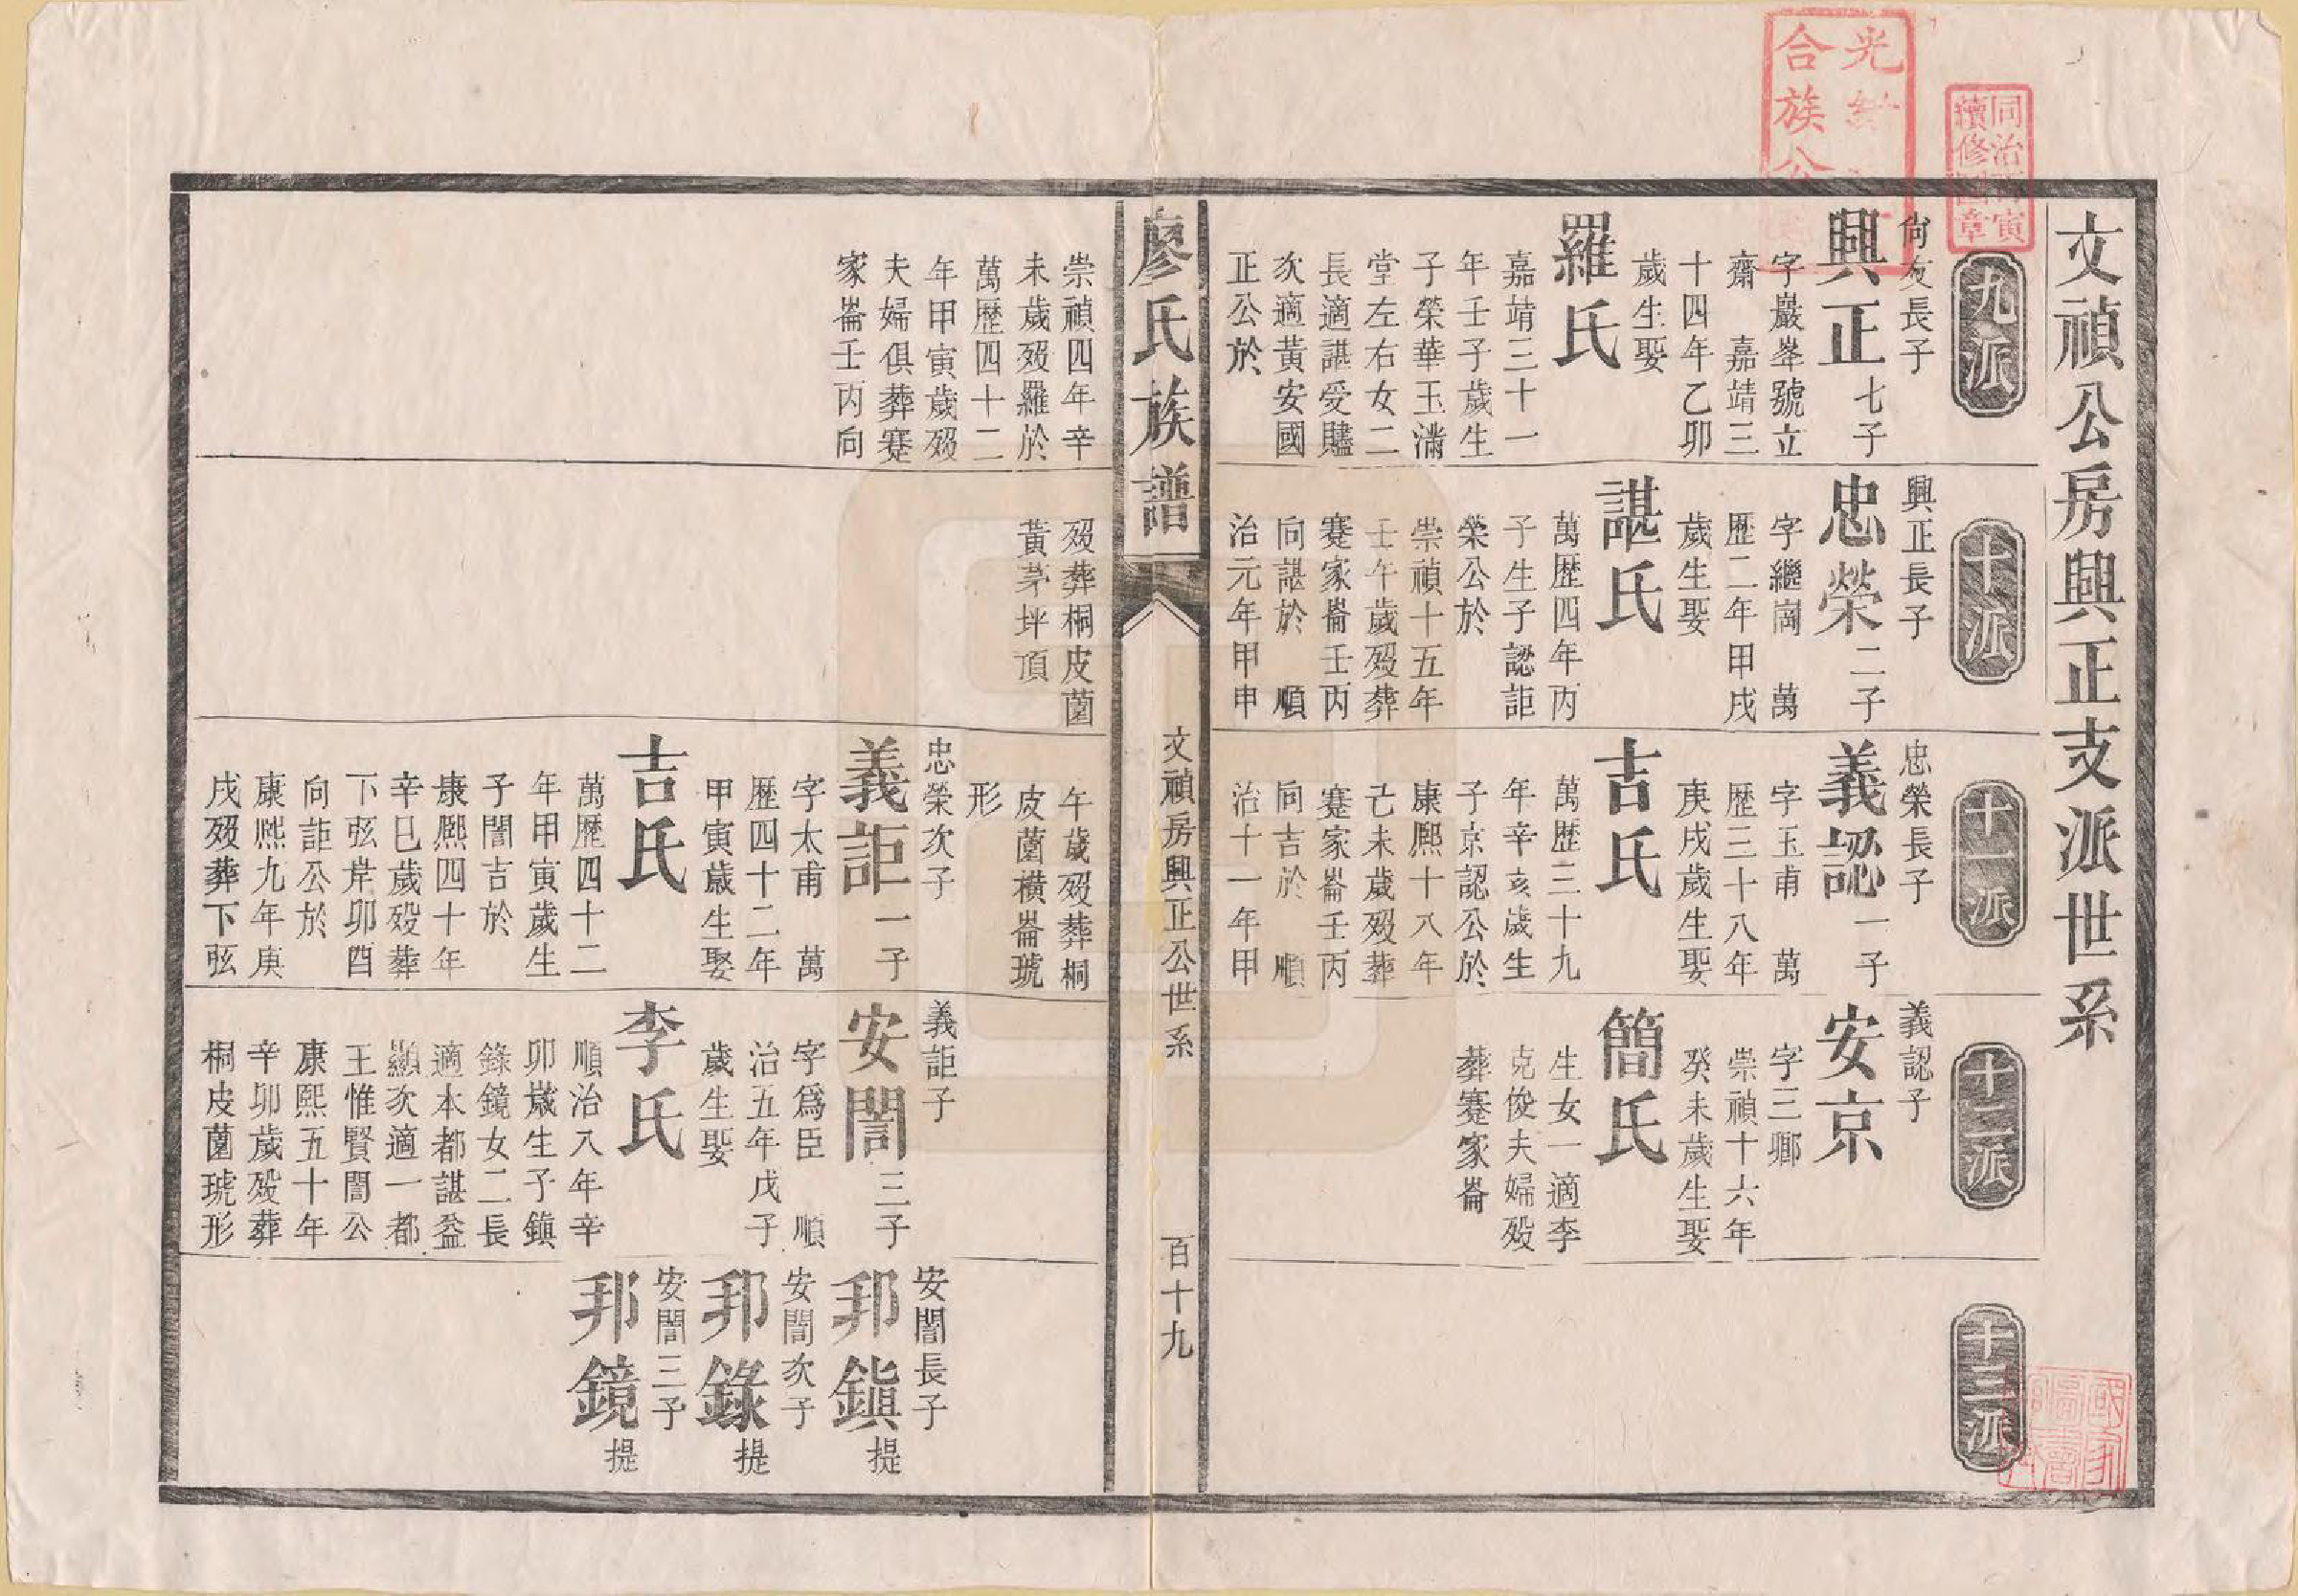 文禎公房興正支派世系
九派
尙友長子
興正七子
字嚴峯號立
齋 嘉靖三
十四年乙卯
歲生娶
羅氏
嘉靖三十一
年壬子歲生
子榮華玉滿
堂左右女二
長適諶受賰
次適黃安國
正公於
崇禎四年辛
未歲歿羅於
萬歷四十二
年甲寅歲歿
夫婦俱葬蹇
家崙壬丙向
十派
興正長子
忠榮二子
字繼崗 萬
歷二年甲戌
歲生娶
諶氏
萬歷四年丙
子生子認詎
榮公於
崇禎十五年
壬午歲歿葬
蹇家崙壬丙
向諶於 順
治元年甲申
歿葬桐皮薗
黃茅坪頂
十一派
忠榮長子
義認一子
字玉甫 萬
歷三十八年
庚戌歲生娶
吉氏
萬歷三十九
年辛亥歲生
子京認公於
康熙十八年
己未歲歿葬
蹇家崙壬丙
向吉於 順
治十一年甲
午歲歿葬桐
皮薗橫崙琥
形
忠榮次子
義詎一子
字太甫 萬
歷四十二年
甲寅歲生娶
吉氏
萬歷四十二
年甲寅歲生
子誾吉於
康熙四十年
辛巳歲歿葬
下弦岸卯酉
向詎公於
康熙九年庚
戌歿葬下弦
十二派
義認子
安京
字三鄉
崇禎十六年
癸未歲生娶
簡氏
生女一適李
克俊夫婦歿
葬蹇家崙
義詎子
安誾三子
字爲臣 順
治五年戊子
歲生娶
李氏
順治八年辛
卯歲生子鎭
錄鏡女二長
適本都諶益
顯次適一都
王惟賢誾公
康熙五十年
辛卯歲歿葬
桐皮薗琥形
十三派
安誾長子
邦鎭提
安誾次子
邦錄提
安誾三子
邦鏡提
廖氏族譜
文禎房興正公世系
百十九
同治丙寅
續修圖章
光緒
合族公